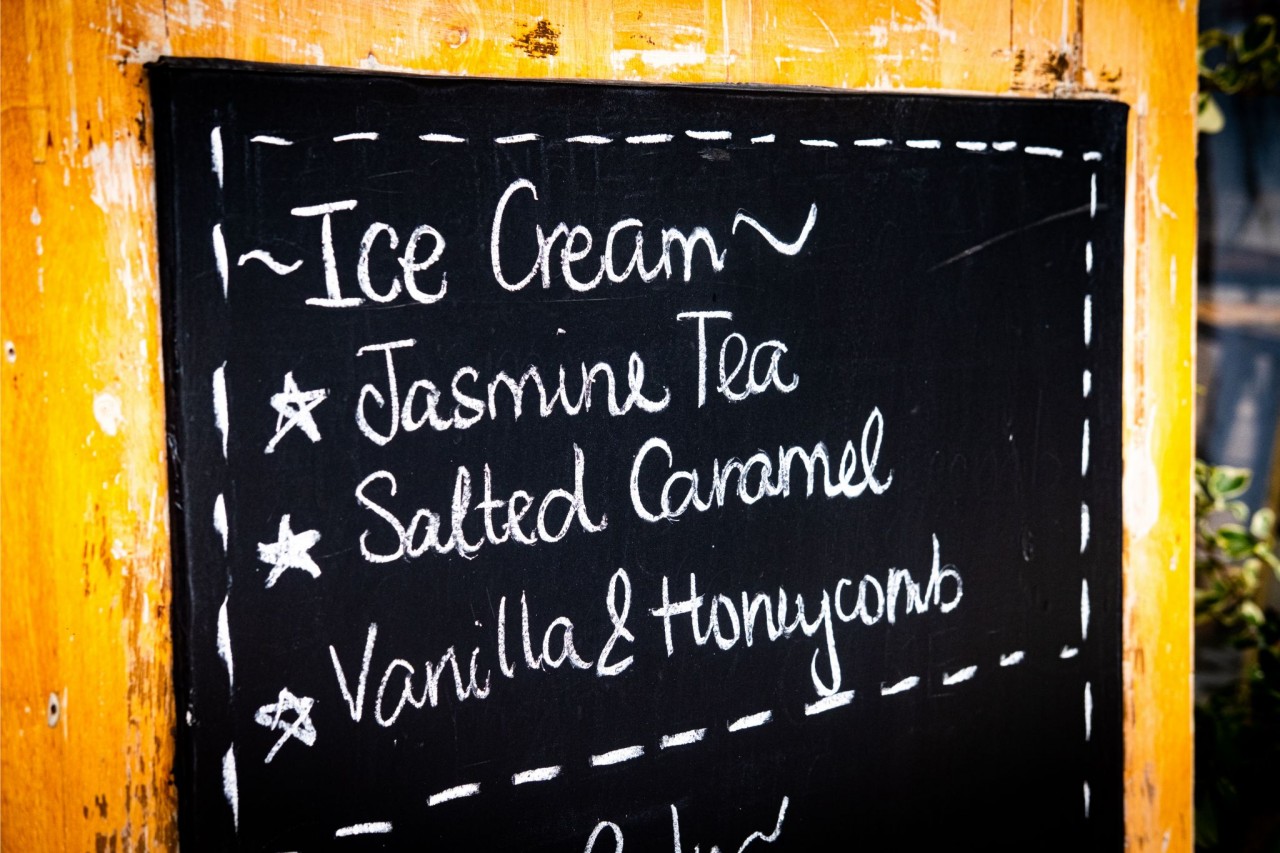 ~Ice Cream~
Jasmine Tea
Salted Caramel
Vanilla & Honeycomb